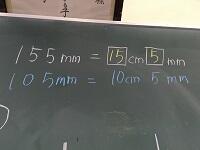 155mm = 15cm5mm
105mm = 10cm 5mm